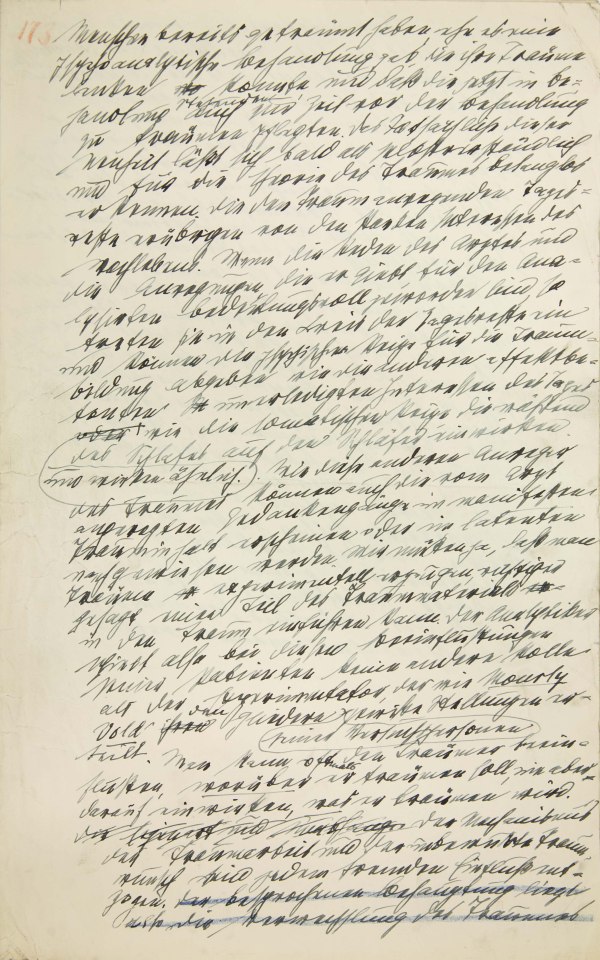 173
Menschen bereits geträumt haben, ehe es eine
psychoanalytische Behandlung gab, die ihre Träume
lenken konnte und daß die jetzt in Be-
handlung Stehenden auch zur Zeit vor der Behandlung
zu träumen pflegten. Das Tatsächliche dieser
Neuheit läßt sich bald als selbstverständlich
und für die Theorie des Traumes belanglos
erkennen. Die den Traum anregenden Tages-
reste erübrigen von den starken Interessen des
Wachlebens. Wenn die Reden des Arztes und
die Anregungen, die er giebt für den Ana-
lysirten bedeutungsvoll geworden sind, so
treten sie in den Kreis der Tagesreste ein
und können die psychischen Reize für die Traum-
bildung abgeben wie die anderen affektbe-
tonten unerledigten Interessen des Tages
oder wie die somatischen Reize die während
des Schlafes auf den Schläfer einwirken.
und wirken ähnlich. Wie diese anderen Anreger
des Traumes können auch die vom Arzt
angeregten Gedankengänge im manifesten
Trauminhalt erscheinen oder im latenten
nachgewiesen werden. Wir wissen ja, daß man
Träume experimentell erzeugen, richtiger
gesagt einen Teil des Traummaterials
in den Traum einführen kann. Der Analytiker
spielt also bei diesen Beeinflußungen
seiner Patienten keine andere Rolle
als der Experimentator, der wie Mourly
Vold den Gliedern gewisse Stellungen er-
seiner Versuchspersonen
teilt. Man kann oftmals den Träumer beein-
flußen, worüber er träumen soll, nie aber
darauf einwirken, was er träumen wird.
Der Mechanismus
der Traumarbeit und der unbewußte Traum-
wunsch sind jedem fremden Einfluß ent-
zogen. Der besprochenen Behauptung liegt
also die Verwechslung des Traumes